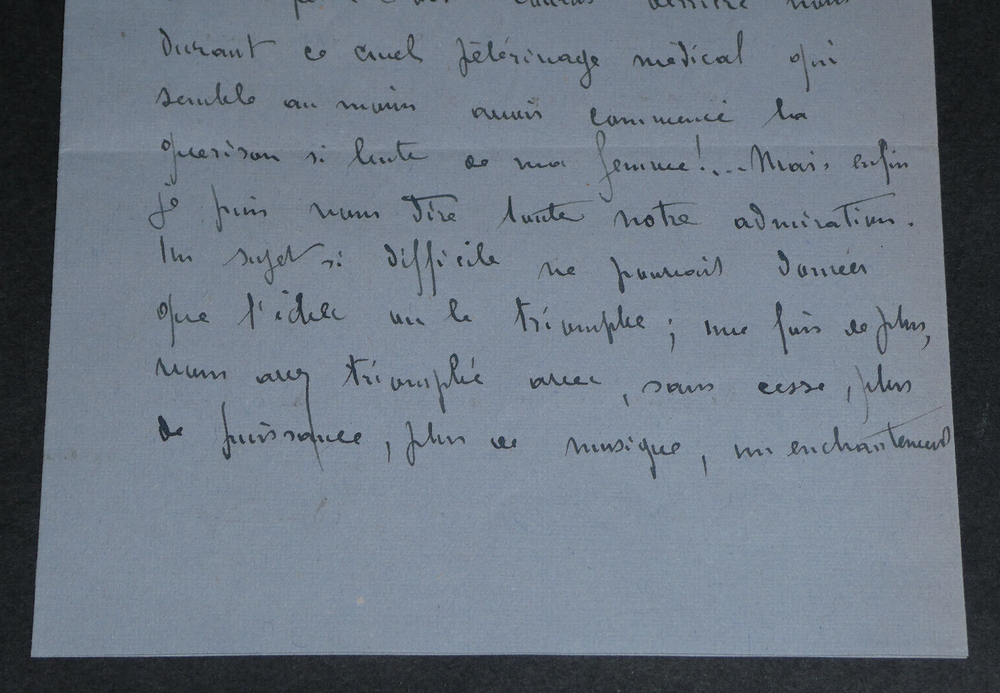 derrière nous
durant ce cruel pèlerinage médical qui
semble au moins avoir commencé la
guérison si lente de ma femme!... Mais enfin
je puis vous dire toute notre admiration.
Un sujet si difficile ne pouvait donner
que l'échec ou le triomphe ; une fois de plus,
vous avez triomphé avec, sans cesse, plus
de puissance, plus de musique, un enchantement